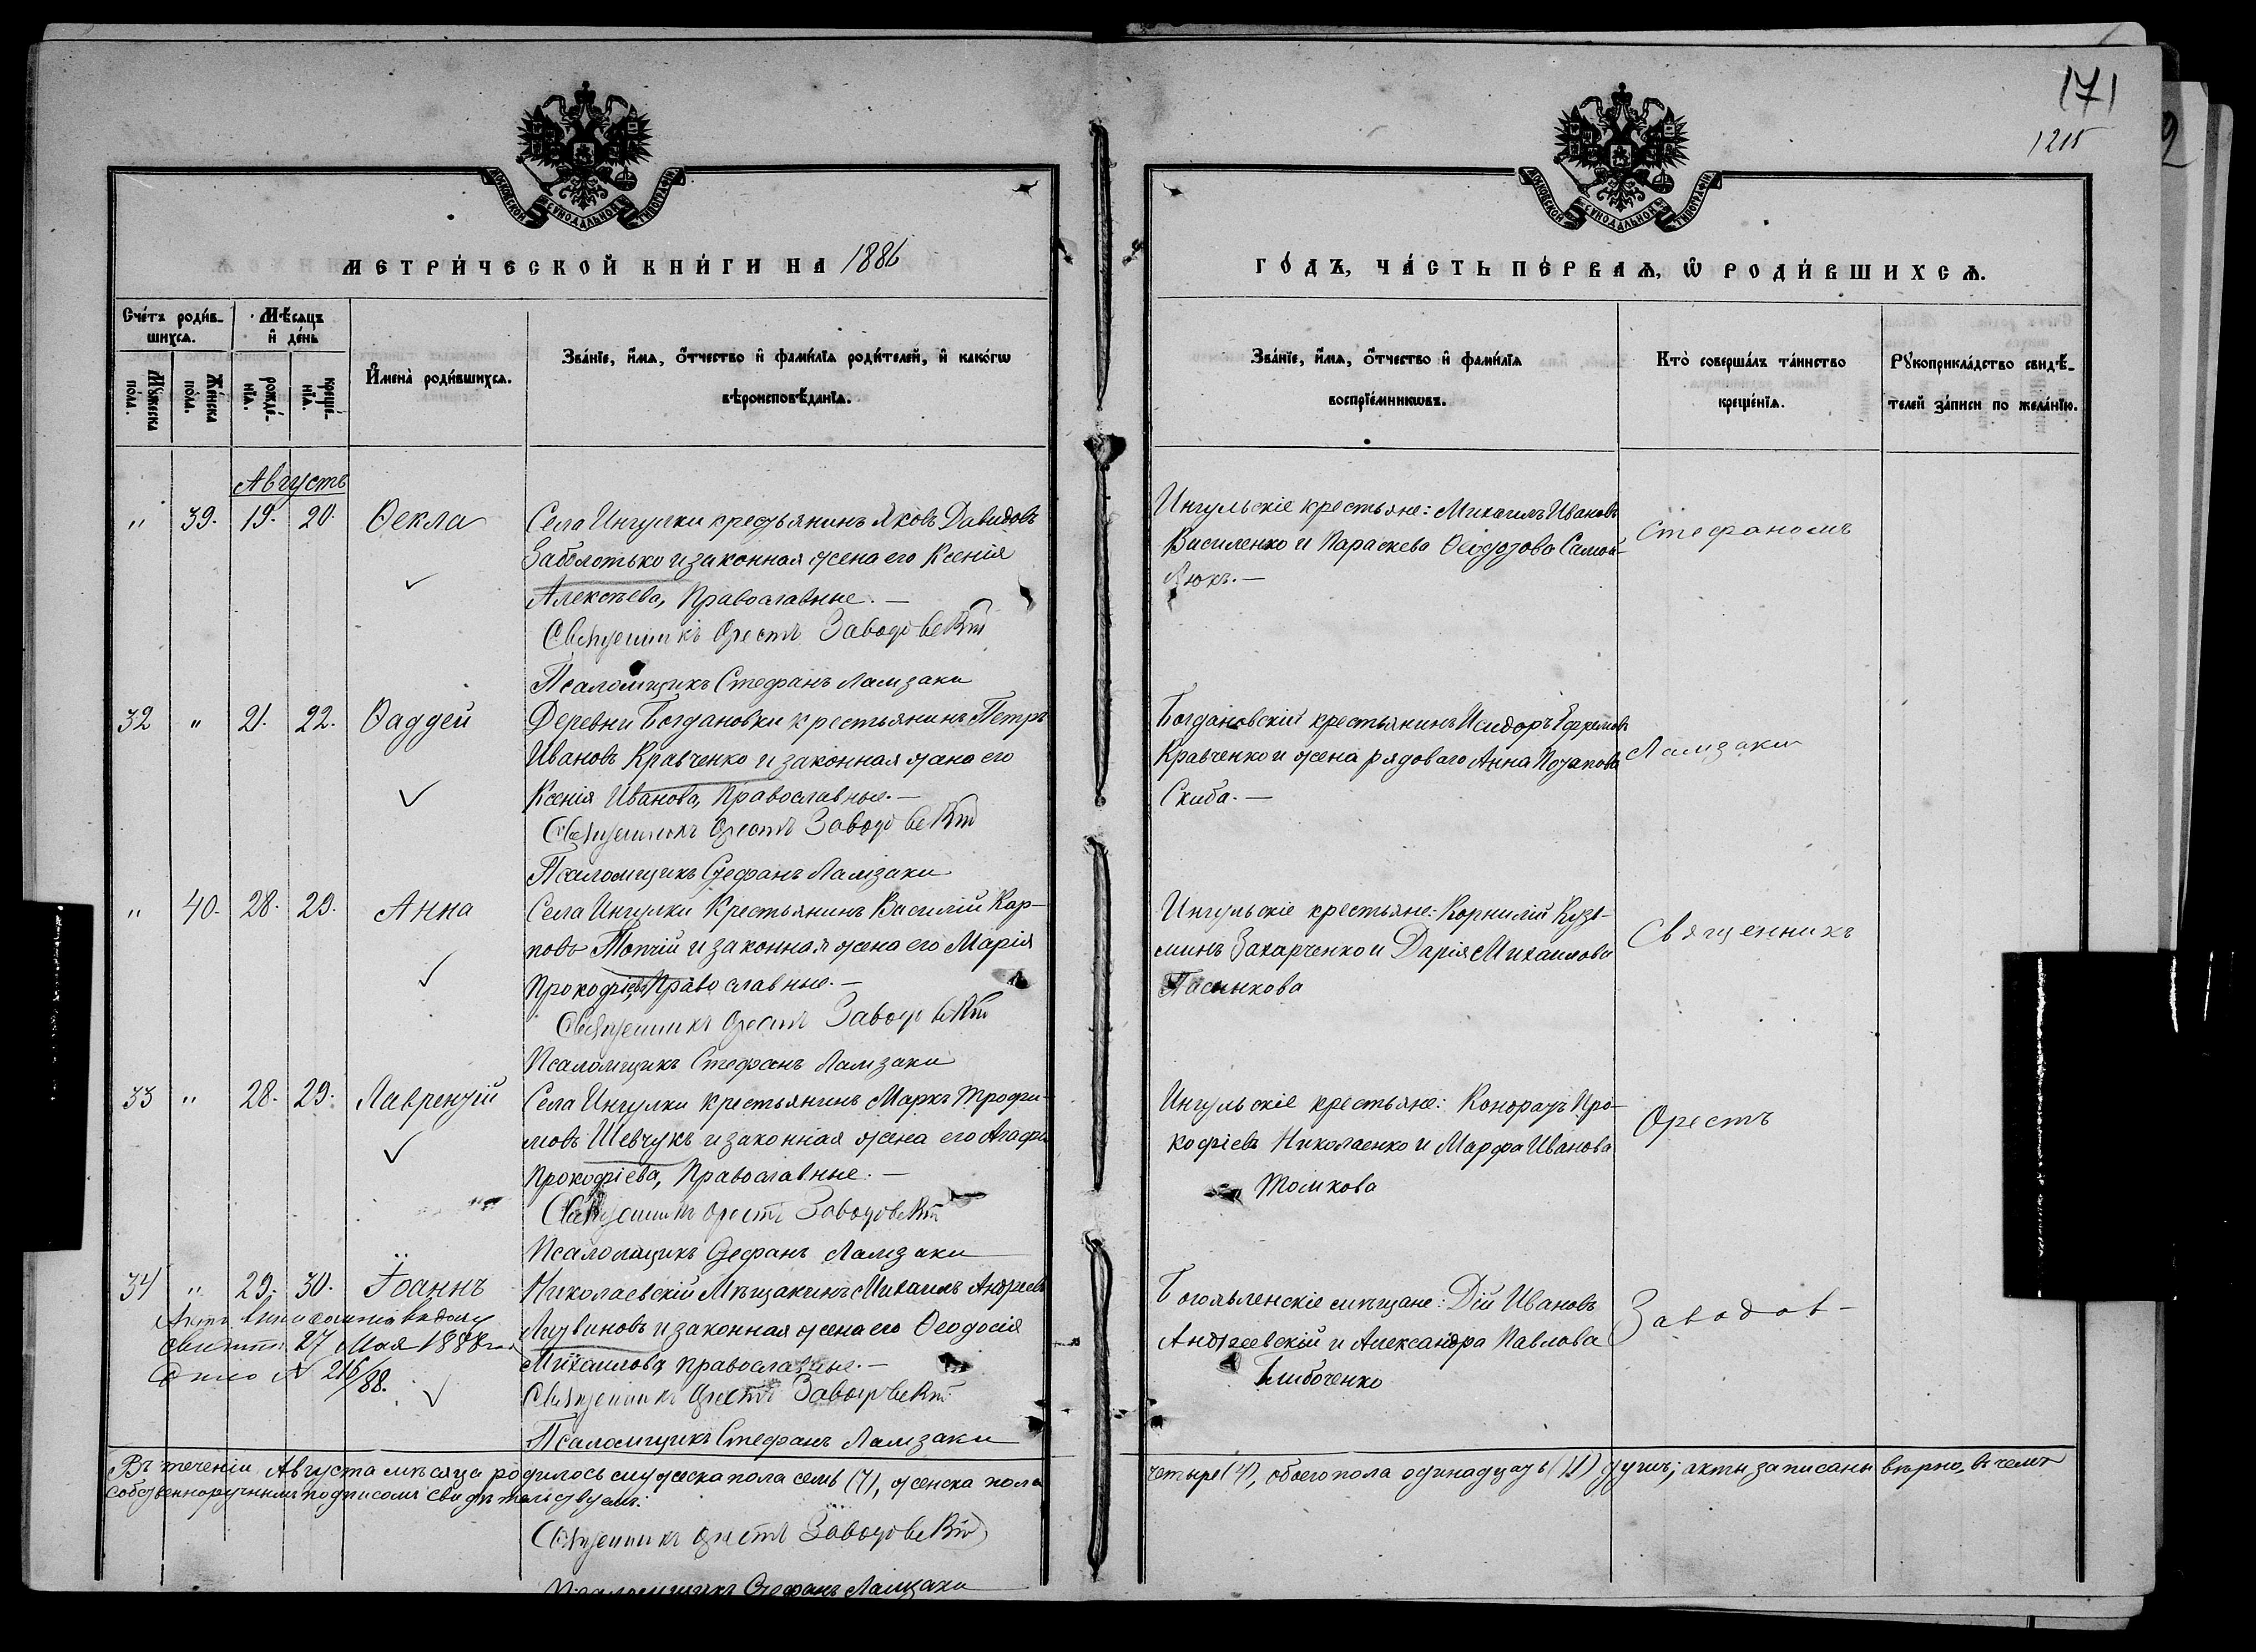 171
1215
МОСКОВСКОЙ СѴНОДАЛЬНОЙ ТИПОГРАФІИ
МОСКОВСКОЙ СѴНОДАЛЬНОЙ ТИПОГРАФІИ
МЕТРИ́ЧЕСКОЙ КНИ́ГИ НА 1886
ГО́ДЪ, ЧА́СТЬ ПЕ́РВАѦ, Ѿ РОДИ́ВШИХСѦ.
Сче́тъ роди́в-
шихсѧ.
Мѣ́сѧцъ
и҆ де́нь
Мꙋ́жеска по́ла.
Же́нска по́ла.
рожде́-нїѧ.
креще́-нїѧ.
И҆мена̀ роди́вшихсѧ.
Зва́нїе, и҆́мѧ, ѻ҆́тчество и҆ фами́лїѧ роди́телей, и҆ како́гѡ
вѣроисповѣ́данїѧ.
Зва́нїе, и҆́мѧ, ѻ҆́тчество и҆ фами́лїѧ
воспрїе́мникѡвъ.
Кто̀ соверша́лъ та́инство
креще́нїѧ.
Рꙋкоприкла́дство свидѣ́-
телей за́писи по жела́нїю.
Августъ
" 39. 19. 20. Ѳекла
Села Ингулки крестьянинъ Яковъ Давидовъ
Заболотько и законная жена его Ксенія
Алексѣева, Православные. —
Священникъ Орестъ Заводовскій
Псаломщикъ Стефанъ Ламзаки
Ингульскіе крестьяне: Михаилъ Ивановъ
Василенко и Параскева Ѳеодотова Самой-
люкъ. —
Стефаномъ
32 " 21. 22. Ѳаддей
Деревни Богдановки крестьянинъ Петръ
Ивановъ Кравченко и законная жена его
Ксенія Иванова, Православные. —
Священникъ Орестъ Заводовскій
Псаломщикъ Стефанъ Ламзаки
Богдановскій крестьянинъ Исидоръ Ефремовъ
Кравченко и жена рядоваго Анна Потапова
Скиба. —
Ламзаки
" 40. 28. 29. Анна
Села Ингулки Крестьянинъ Василій Кар-
повъ Топчій и законная жена его Марія
Прокофіева, Православные. —
Священникъ Орестъ Заводовскій
Псаломщикъ Стефанъ Ламзаки
Ингульскіе крестьяне: Корнилій Кузь-
минъ Захарченко и Дарія Михаилова
Пасынкова
Священникъ
33 " 28. 29. Лаврентій
Села Ингулки крестьянинъ Маркъ Трофи-
мовъ Шевчукъ и законная жена его Агафія
Прокофіева, Православные. —
Священникъ Орестъ Заводовскій
Псаломщикъ Стефанъ Ламзаки
Ингульскіе крестьяне: Кондратъ Про-
кофіевъ Николаенко и Марфа Иванова
Томкова
Орестъ
34 " 29. 30. Іоаннъ
Николаевскій Мѣщанинъ Михаилъ Андреевъ
Литвиновъ и законная жена его Ѳеодосія
Михаилова, православные. —
Священникъ Орестъ Заводовскій
Псаломщикъ Стефанъ Ламзаки
27 Мая 1888 г.
№ 216/88.
Богоявленскіе мѣщане: Дій Ивановъ
Андреевскій и Александра Павлова
Глибоченко
Заводов-
Въ теченіи Августа мѣсяца родилось мужеска пола семь (7), женска пола
четыре (4), обоего пола одинадцать (11) душъ; акты записаны вѣрно, въ чемъ
собственноручнымъ подписомъ свидѣтельствуемъ:
Священникъ Орестъ Заводовскій
Псаломщикъ Стефанъ Ламзаки